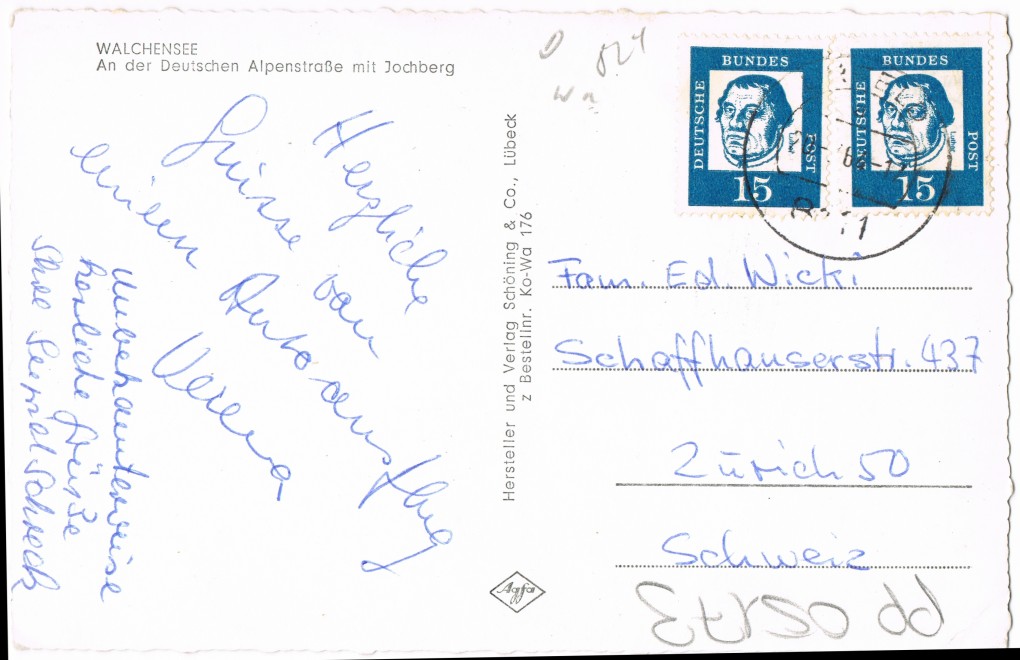 WALCHENSEE
An der Deutschen Alpenstraße mit Jochberg
Herzliche
Grüsse vom
einem Autoausflug
Verena
Unbekannterweise
herzliche Grüße
Ihre
Hersteller und Verlag Schöning & Co., Lübeck
z Bestellnr. Ko-Wa 176
Agfa
824
DEUTSCHE BUNDES POST
Luther
15
DEUTSCHE BUNDES POST
Luther
15
Fam. Ed. Wicki
Schaffhauserstr. 437
Zürich 50
Schweiz
pp 05173